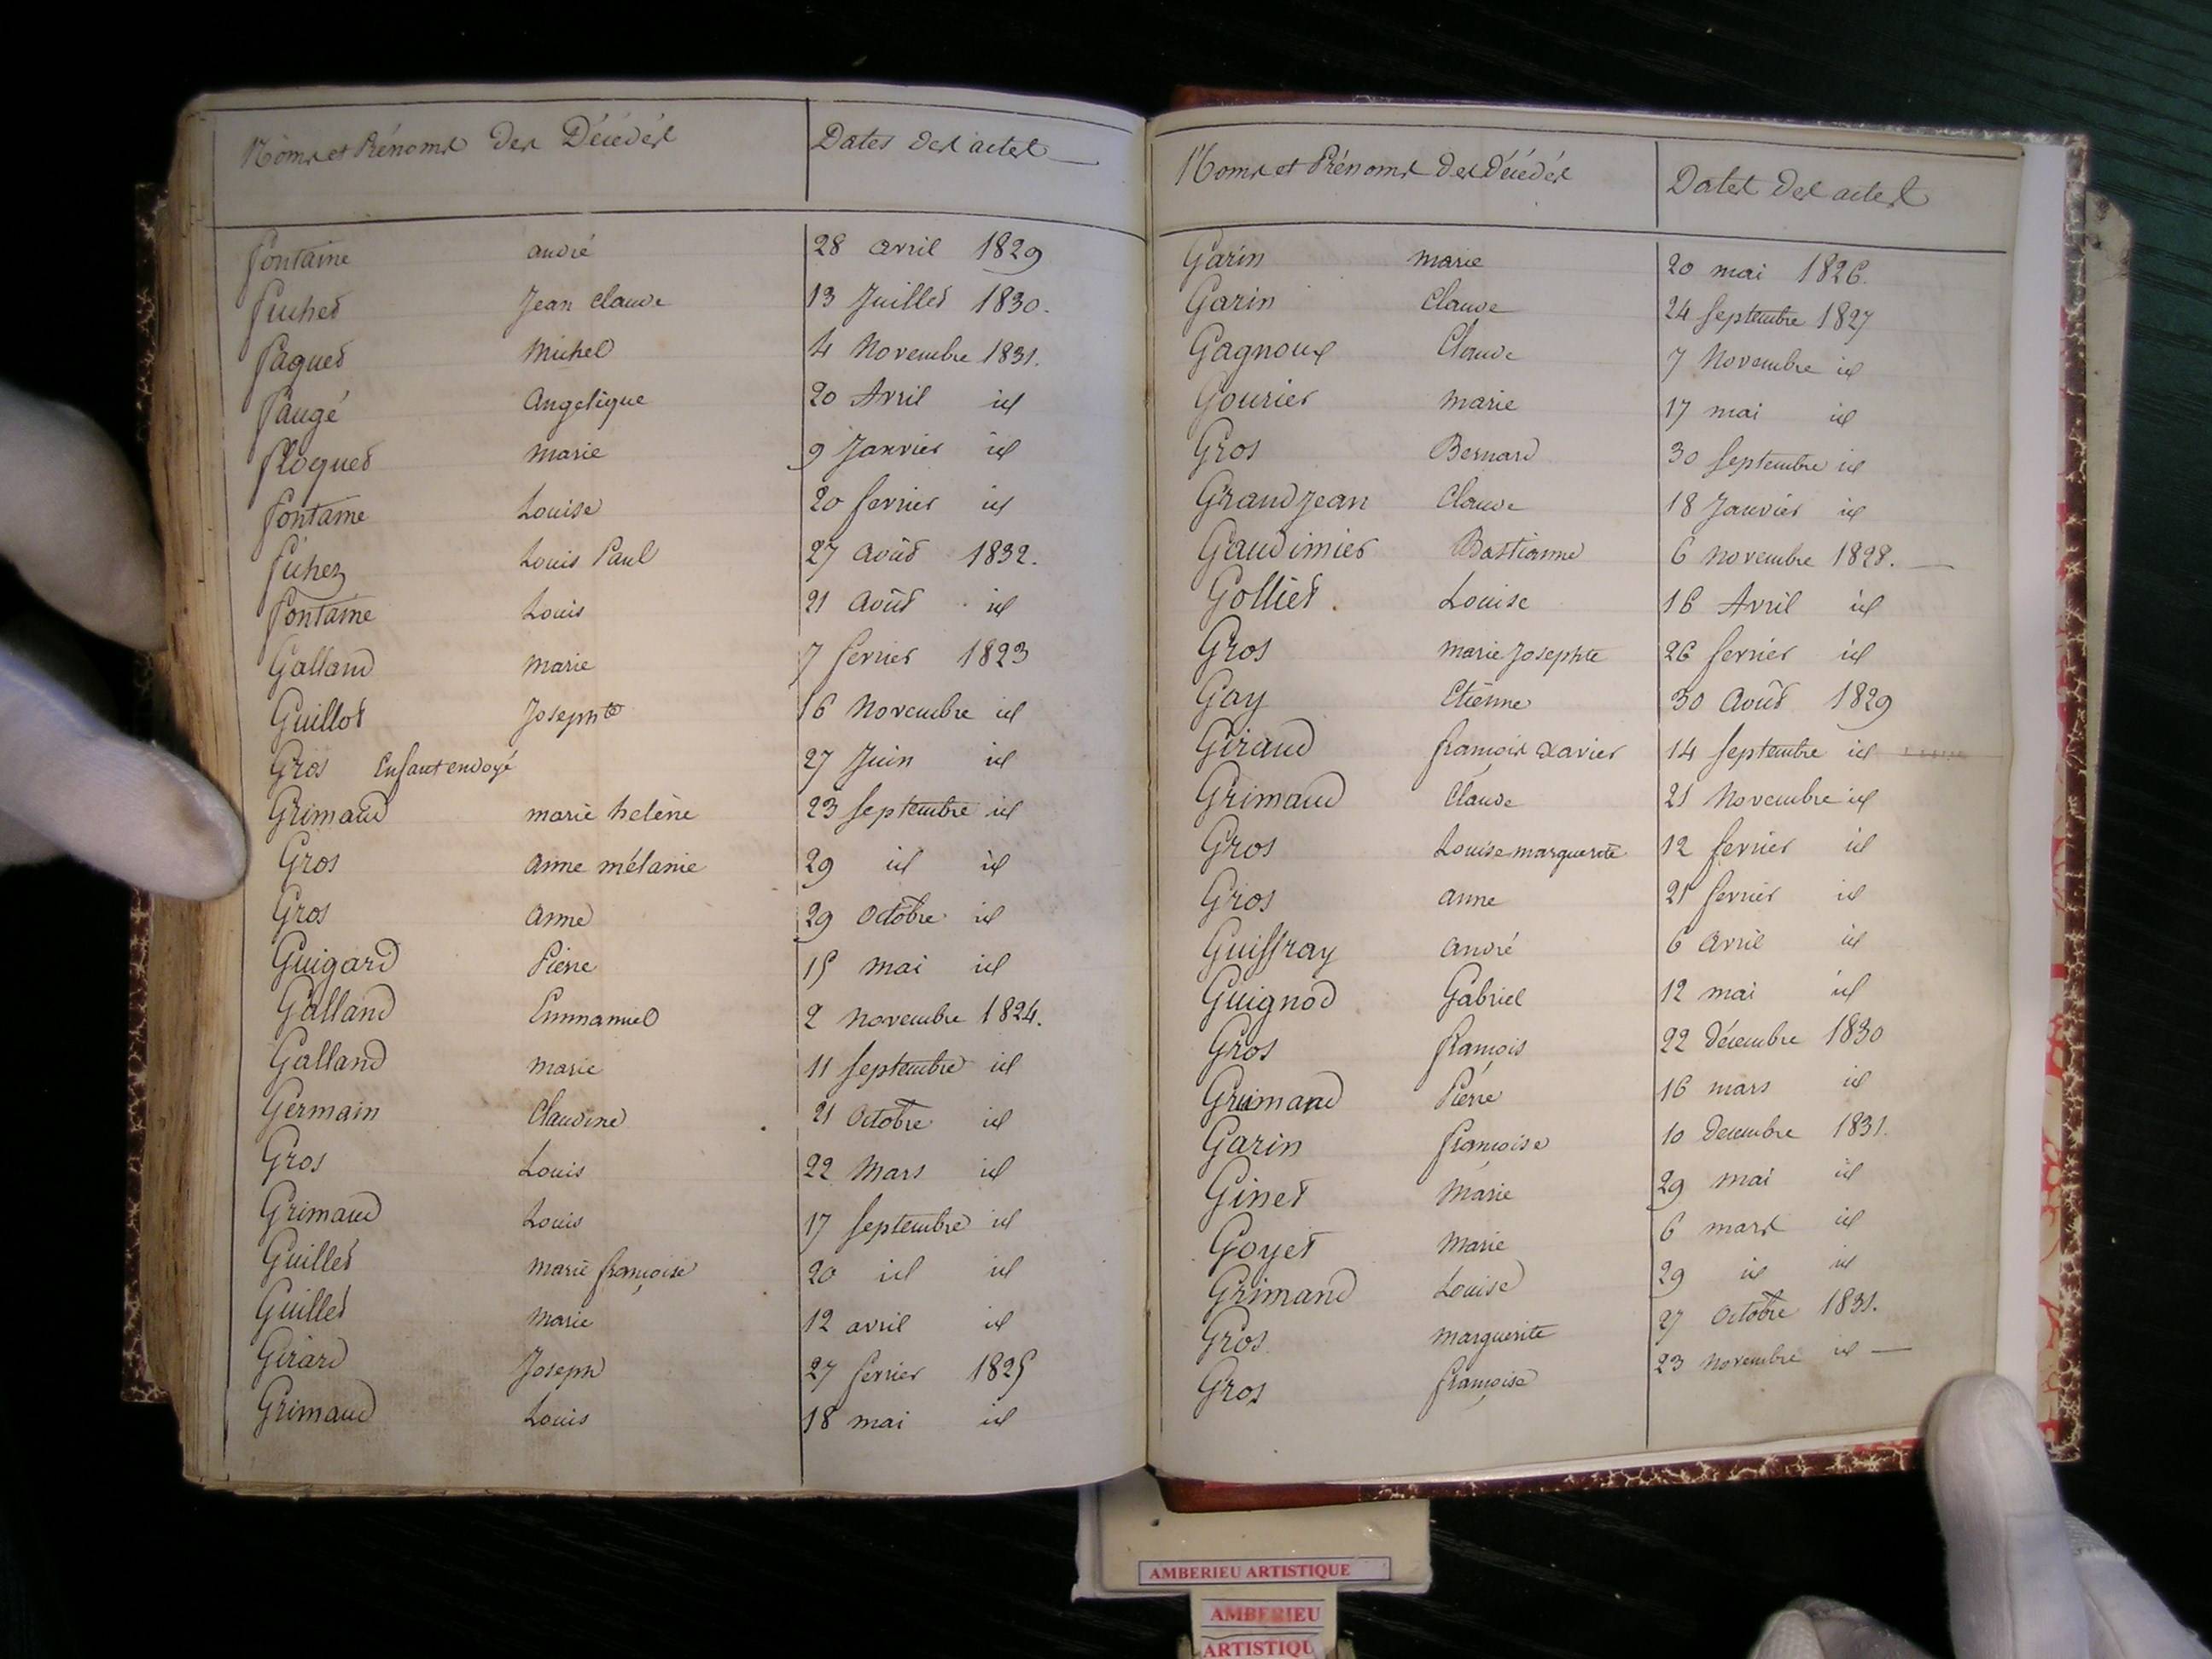 Noms et Prénoms des Décédés Dates des actes
fontaine andré 28 avril 1829
fichet Jean Claude 13 Juillet 1830.
faquet Michel 4 Novembre 1831.
faugé Angelique 20 Avril id
floquet marie 9 Janvier id
fontaine Louise 20 fevrier id
fichez Louis Paul 27 Août 1832.
fontaine Louis 21 Août id
Galland marie 7 fevrier 1823
Guillot Josephte 16 Novembre id
Gros Enfant endoyé 27 Juin id
Grimaud marie helène 23 septembre id
Gros anne mélanie 29 id id
Gros anne 29 Octobre id
Guigard Pierre 15 mai id
Galland Emmanuel 2 Novembre 1824.
Galland marie 11 septembre id
Germain Claudine 21 Octobre id
Gros Louis 22 Mars id
Grimaud Louis 17 septembre id
Guillet marie françoise 20 id id
Guillet marie 12 avril id
Girard Joseph 27 fevrier 1825
Grimaud Louis 18 mai id
Noms et Prénoms des Décédés Dates des actes
Garin marie 20 mai 1826.
Garin Claude 24 septembre 1827
Gagnoux Claude 7 Novembre id
Gourier marie 17 mai id
Gros Bernard 30 septembre id
Grandjean Claude 18 Janvier id
Gaudimier Bastianne 6 novembre 1828.
Golliet. Louise 16 Avril id
Gros marie Josephte 26 fevrier id
Gay Etienne 30 Août 1829
Giraud françois Xavier 14 septembre id
Grimaud Claude 21 Novembre id
Gros Louise marguerite 12 fevrier id
Gros anne 21 fevrier id
Guiffray andré 6 avril id
Guignod Gabriel 12 mai id
Gros françois 22 Décembre 1830
Grimaud Pierre 16 mars id
Garin françoise 10 Decembre 1831.
Ginet Marie 29 mai id
Goyet Marie 6 mars id
Grimand Louise 29 id id
Gros. marguerite 27 Octobre 1831.
Gros françoise 23 Novembre id
AMBERIEU ARTISTIQUE
AMBERIEU
ARTISTIQU